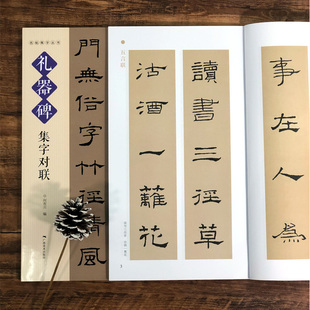 礼器碑
集字对联
門無俗字竹徑清風
五言联
讀書三徑草
沽酒一籬花
事在人為